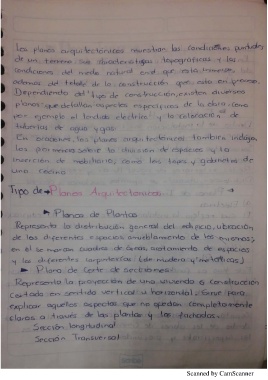 Los planos arquitectónicos muestran las condiciones puntuales
de un terreno sus características topográficas y las
condiciones del medio natural en el que está inmerso,
además del total de la construcción que está en proceso.
Dependiendo del tipo de construcción, existen diversos
planos que detallan aspectos específicos de la obra como
por ejemplo el tendido eléctrico y la colocación de
tuberías de agua y gas.
En ocasiones, los planos arquitectónicos también indagan
las dimensiones sobre la división de espacios y la
inserción de mobiliario, como los lujos y gabinetes de
una cocina
Tipo de → Planos Arquitectonicos
➤ Planos de Planta
Representa la distribución general del edificio, ubicación
de los diferentes espacios amueblamiento de los mismos;
en él se marcan cuadros de áreas, tratamiento de espacios
y las diferentes carpinterías (de madera y metálicas)
➤ Plano de Corte de secciones:
Representa la proyección de una vivienda o construcción
cortada en sentido vertical u horizontal; sirve para
explicar aquellos aspectos que no quedan completamente
claros a través de las plantas y las fachadas.
Sección longitudinal
Sección Transversal
Scanned by CamScanner